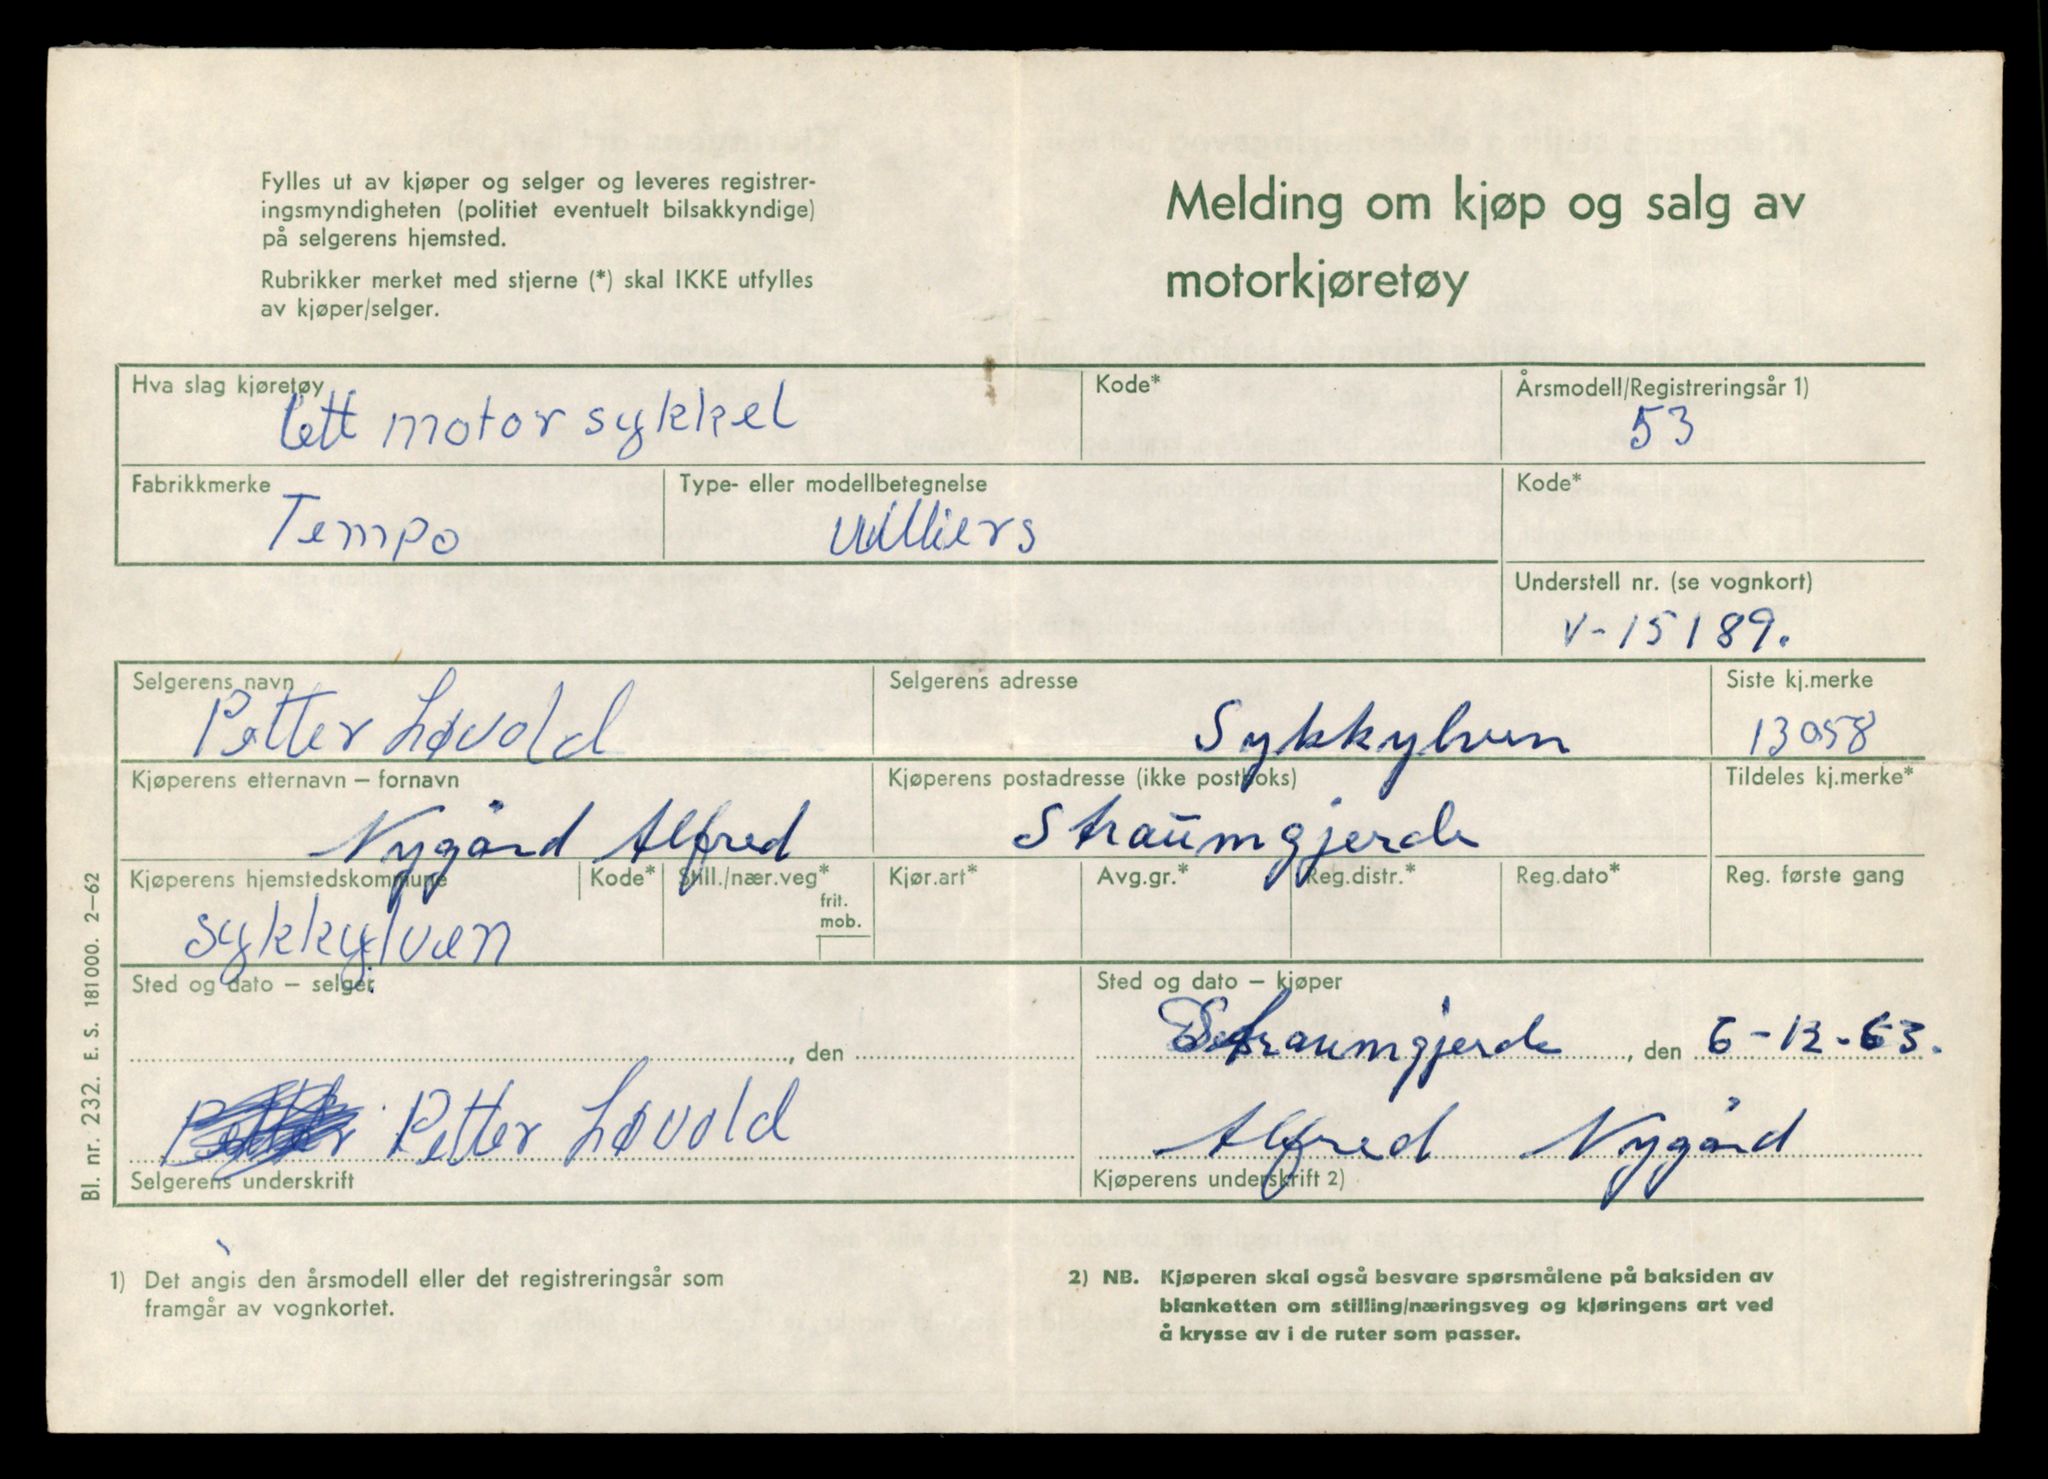 Fylles ut av kjøper og selger og leveres registrer-
ingsmyndigheten (politiet eventuelt bilsakkyndige)
på selgerens hjemsted.
Rubrikker merket med stjerne (*) skal IKKE utfylles
av kjøper/selger.
Melding om kjøp og salg av
motorkjøretøy
Hva slag kjøretøy
lett motorsykkel
Kode*
Årsmodell/Registreringsår 1)
53
Fabrikkmerke
Tempo
Type- eller modellbetegnelse
Villiers
Kode*
Understell nr. (se vognkort)
V-15189.
Selgerens navn
Petter Løvold
Selgerens adresse
Sykkylven
Siste kj.merke
13058
Kjøperens etternavn – fornavn
Nygård Alfred
Kjøperens postadresse (ikke postboks)
Straumgjerde
Tildeles kj.merke*
Kjøperens hjemstedskommune
sykkylven
Kode*
Still./nær.veg*
frit.
mob.
Kjør.art*
Avg.gr.*
Reg.distr.*
Reg.dato*
Reg. første gang
Sted og dato – selger
, den
Petter Petter Løvold
Selgerens underskrift
Sted og dato – kjøper
Straumgjerde, den 6-12-63.
Alfred Nygård
Kjøperens underskrift 2)
Bl. nr. 232. E. S. 181000. 2–62
1) Det angis den årsmodell eller det registreringsår som
framgår av vognkortet.
2) NB. Kjøperen skal også besvare spørsmålene på baksiden av
blanketten om stilling/næringsveg og kjøringens art ved
å krysse av i de ruter som passer.